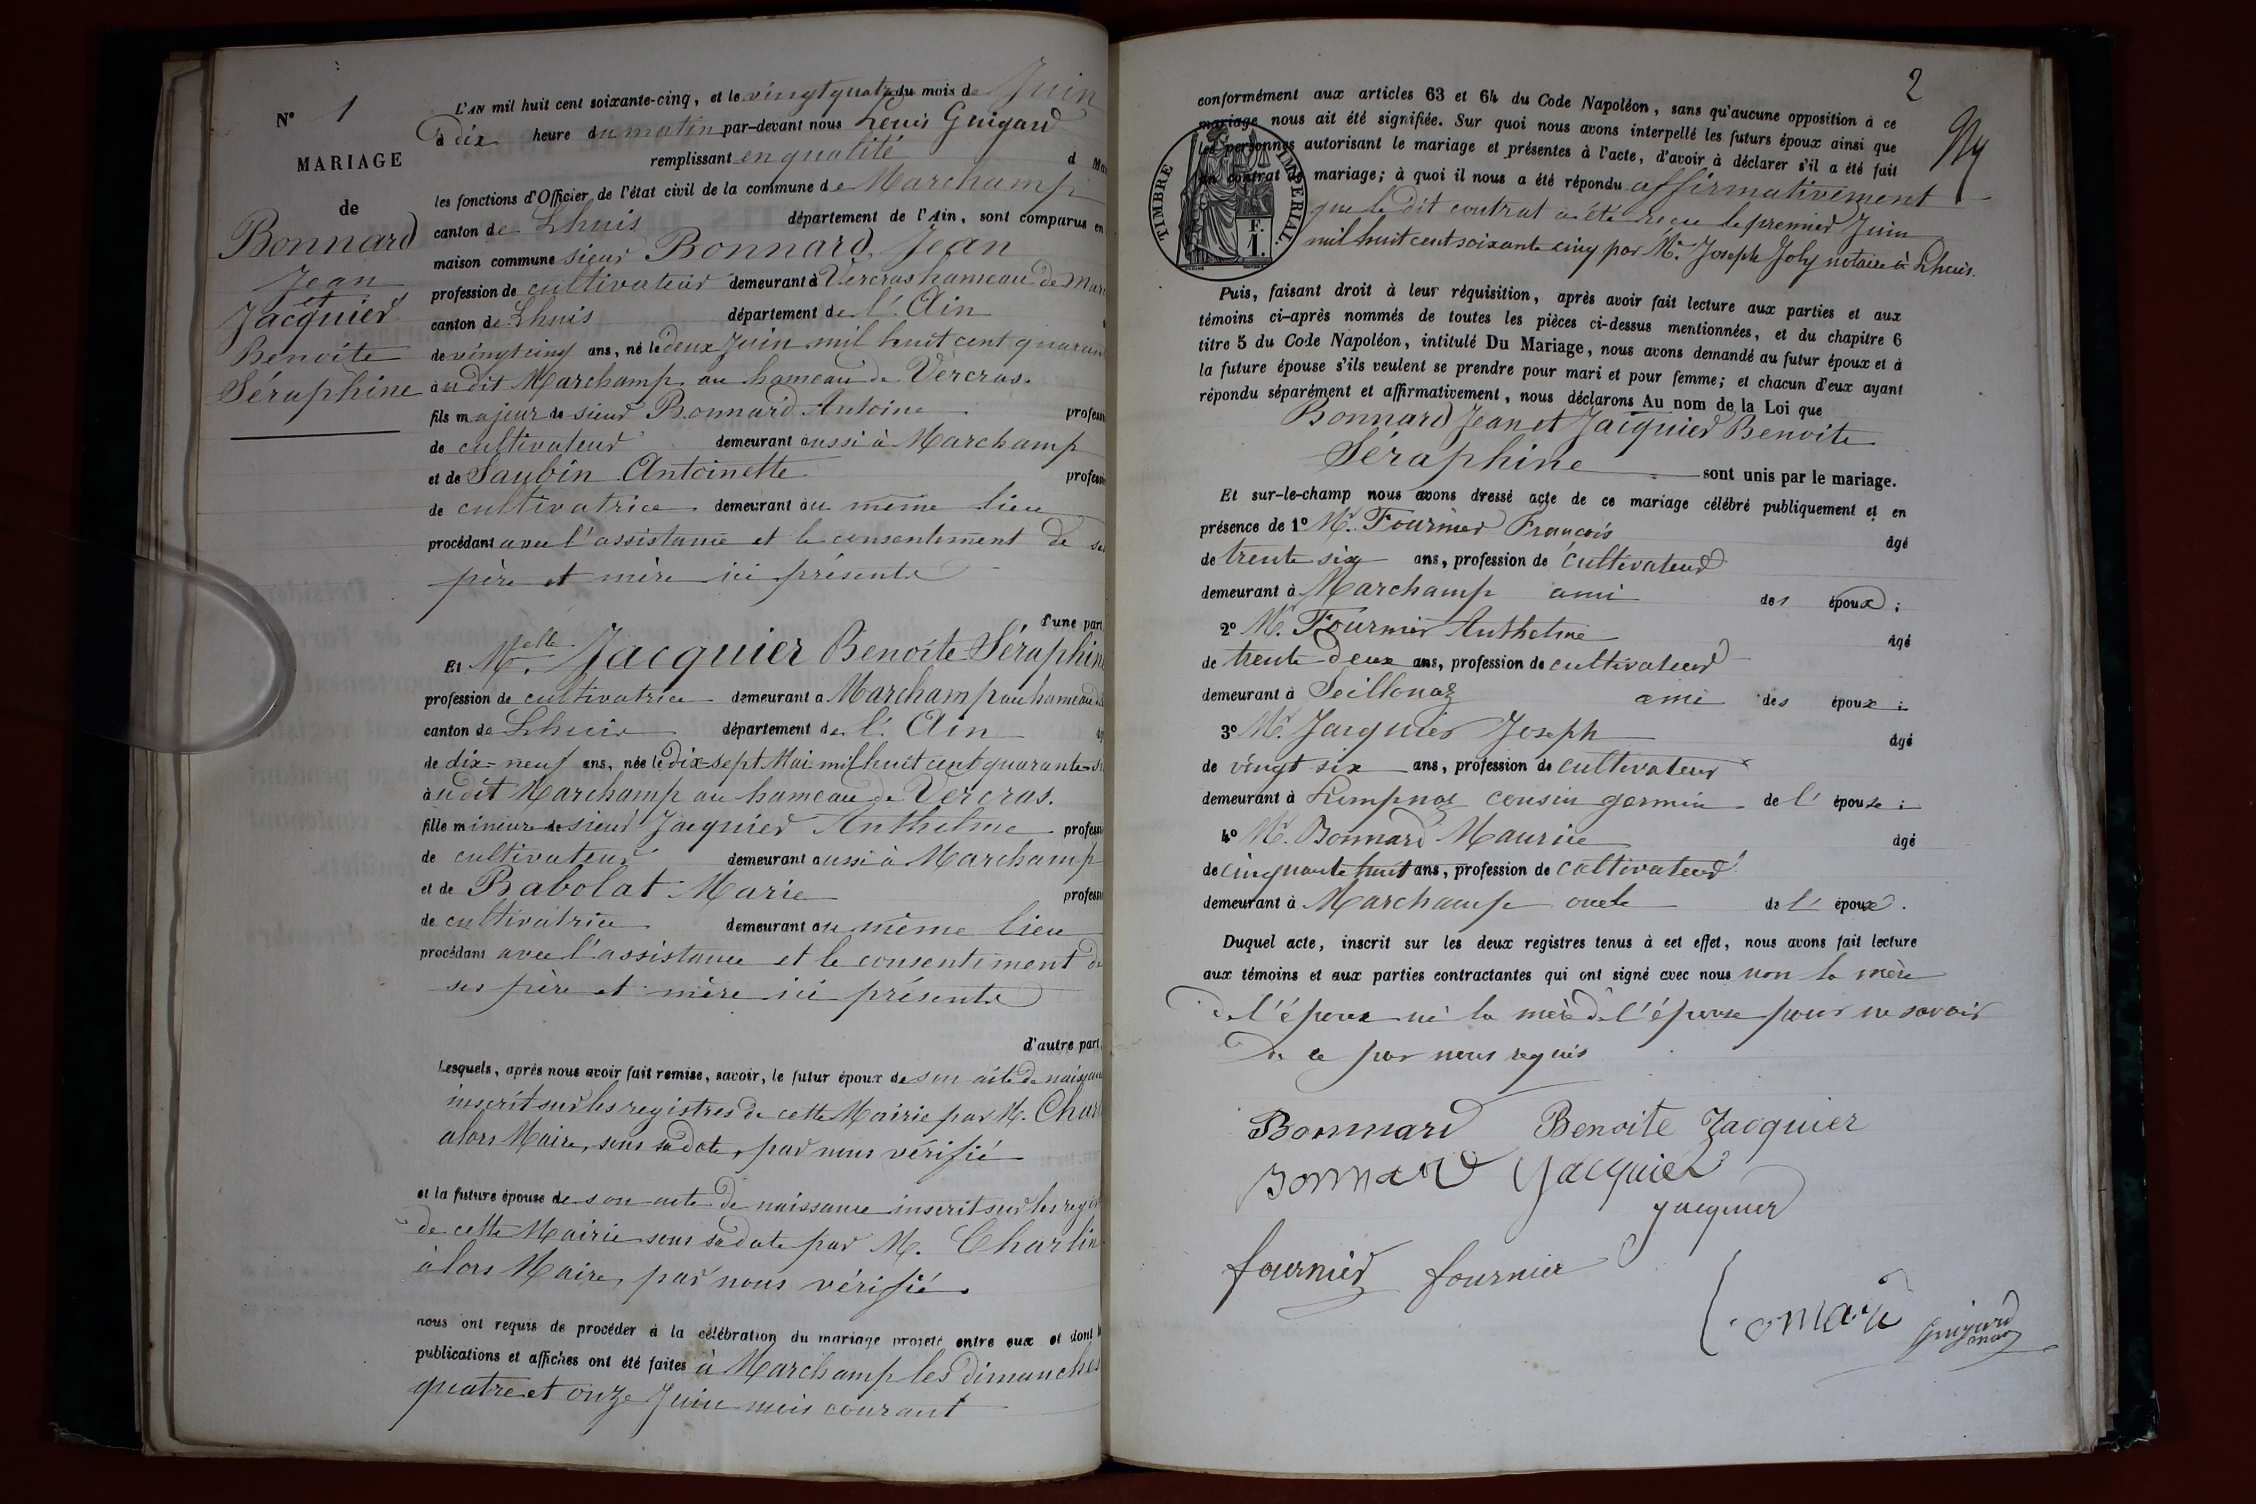 N° 1
MARIAGE
de
Bonnard
Jean
et
Jacquier
Benoite
Séraphine
L'AN mil huit cent soixante-cinq, et le vingt quatre du mois de Juin
à dix heure du matin par-devant nous Louis Guigard
remplissant en qualité d Mai
les fonctions d'Officier de l'état civil de la commune de Marchamp
canton de Lhuis département de l'Ain, sont comparus en
maison commune sieur Bonnard Jean
profession de cultivateur demeurant à Vercras hameau de Mar
canton de Lhuis département de l'Ain
de vingt cinq ans, né le deux Juin mil huit cent quaran
audit Marchamp au hameau de Vercras.
fils majeur de sieur Bonnard Antoine profess
de cultivateur demeurant aussi à Marchamp
et de Saubin Antoinette profess
de cultivatrice demeurant au même lieu
procédant avec l'assistance et le consentement de ses
père et mère ici présents
d'une part
Et Melle Jacquier Benoite Séraphine
profession de cultivatrice demeurant à Marchamp au hameau
canton de Lhuis département de l'Ain
de dix-neuf ans, née le dix-sept Mai mil huit cent quarante-
audit Marchamp au hameau de Vercras.
fille mineure de sieur Jacquier Anthelme profess
de cultivateur demeurant aussi à Marchamp
et de Rabolat Marie profess
de cultivatrice demeurant au même lieu
procédant avec l'assistance et le consentement de
ses père et mère ici présents
d'autre part,
Lesquels, après nous avoir fait remise, savoir, le futur époux de son acte de naissan
inscrit sur les registres de cette Mairie par M. Char
alors Maire, sous sa date, par nous vérifié
et la future épouse de son acte de naissance inscrit sur les regis
de cette Mairie sous sa date par M. Charlin
alors Maire, par nous vérifié.
nous ont requis de procéder à la célébration du mariage projeté entre eux et dont les
publications et affiches ont été faites à Marchamp les dimanches
quatre et onze Juin mois courant
2
conformément aux articles 63 et 64 du Code Napoléon, sans qu'aucune opposition à ce
mariage nous ait été signifiée. Sur quoi nous avons interpellé les futurs époux ainsi que
les personnes autorisant le mariage et présentes à l'acte, d'avoir à déclarer s'il a été fait
un contrat de mariage; à quoi il nous a été répondu affirmativement
que le dit contrat a été reçu le premier Juin
mil huit cent soixante cinq par Me. Joseph Joly notaire à Lhuis.
TIMBRE IMPÉRIAL
F.
1.
Puis, faisant droit à leur réquisition, après avoir fait lecture aux parties et aux
témoins ci-après nommés de toutes les pièces ci-dessus mentionnées, et du chapitre 6
titre 5 du Code Napoléon, intitulé Du Mariage, nous avons demandé au futur époux et à
la future épouse s'ils veulent se prendre pour mari et pour femme; et chacun d'eux ayant
répondu séparément et affirmativement, nous déclarons Au nom de la Loi que
Bonnard Jean et Jacquier Benoite
Séraphine sont unis par le mariage.
Et sur-le-champ nous avons dressé acte de ce mariage célébré publiquement et en
présence de 1° Mr. Fournier François âgé
de trente six ans, profession de cultivateur
demeurant à Marchamp ami des époux;
2° Mr. Fournier Anthelme âgé
de trente deux ans, profession de cultivateur
demeurant à Seillonaz ami des époux;
3° Mr. Jacquier Joseph âgé
de vingt six ans, profession de cultivateur
demeurant à Lompnaz cousin germain de l'épouse;
4° Mr. Bonnard Maurice âgé
de cinquante huit ans, profession de cultivateur
demeurant à Marchamp oncle de l'époux.
Duquel acte, inscrit sur les deux registres tenus à cet effet, nous avons fait lecture
aux témoins et aux parties contractantes qui ont signé avec nous non la mère
de l'époux ni la mère de l'épouse pour ne savoir
de ce par nous requis
Bonnard Benoite Jacquier
Bonnard Jacquier
Jacquier
fournier fournier
Guigard
maire